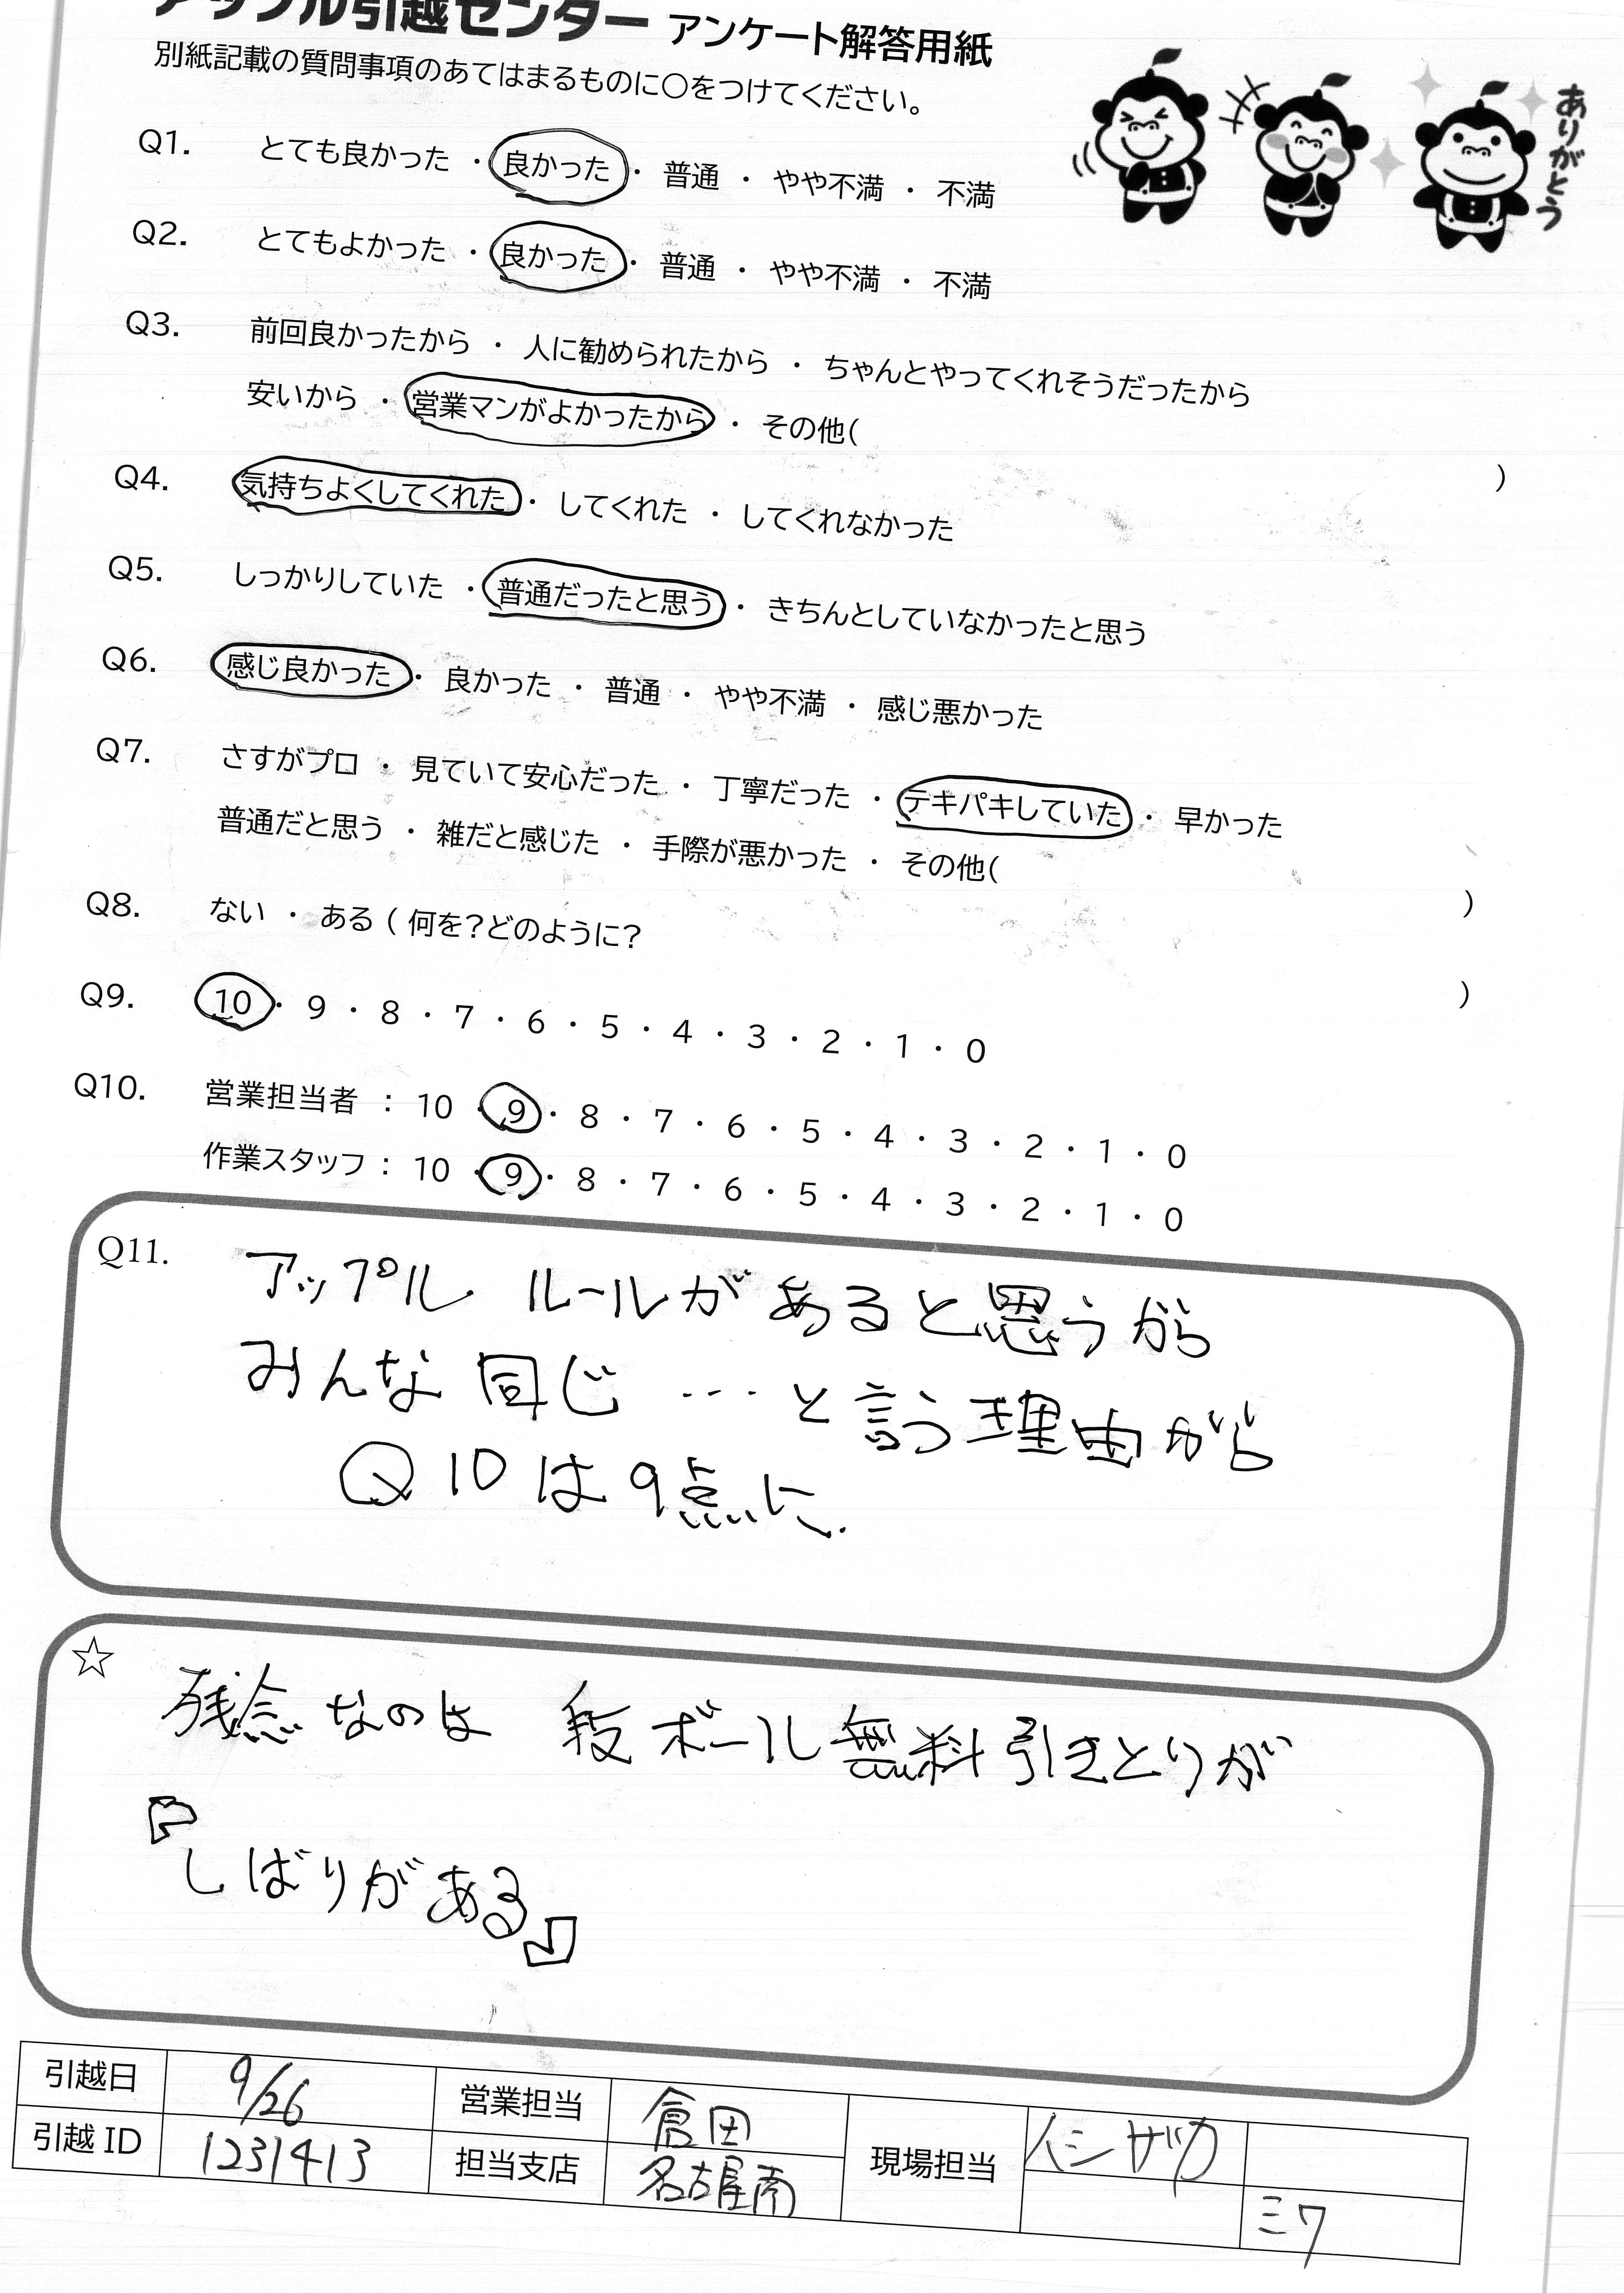 アップル引越センター アンケート解答用紙
別紙記載の質問事項のあてはまるものに○をつけてください。
ありがとう
Q1. とても良かった ・ 良かった ・ 普通 ・ やや不満 ・ 不満
Q2. とてもよかった ・ 良かった ・ 普通 ・ やや不満 ・ 不満
Q3. 前回良かったから ・ 人に勧められたから ・ ちゃんとやってくれそうだったから
安いから ・ 営業マンがよかったから ・ その他( )
Q4. 気持ちよくしてくれた ・ してくれた ・ してくれなかった
Q5. しっかりしていた ・ 普通だったと思う ・ きちんとしていなかったと思う
Q6. 感じ良かった ・ 良かった ・ 普通 ・ やや不満 ・ 感じ悪かった
Q7. さすがプロ ・ 見ていて安心だった ・ 丁寧だった ・ テキパキしていた ・ 早かった
普通だと思う ・ 雑だと感じた ・ 手際が悪かった ・ その他( )
Q8. ない ・ ある ( 何を?どのように? )
Q9. 10 ・ 9 ・ 8 ・ 7 ・ 6 ・ 5 ・ 4 ・ 3 ・ 2 ・ 1 ・ 0
Q10. 営業担当者 : 10 ・ 9 ・ 8 ・ 7 ・ 6 ・ 5 ・ 4 ・ 3 ・ 2 ・ 1 ・ 0
作業スタッフ : 10 ・ 9 ・ 8 ・ 7 ・ 6 ・ 5 ・ 4 ・ 3 ・ 2 ・ 1 ・ 0
Q11. アップル ルールがあると思うから
みんな 同じ … と言う理由から
Q10は9点に.
☆ 残念なのは 段ボール無料引きとりが
『しばりがある』
引越日 9/26 営業担当 倉田 現場担当 イシザカ
引越ID 1231413 担当支店 名古屋南 ミワ